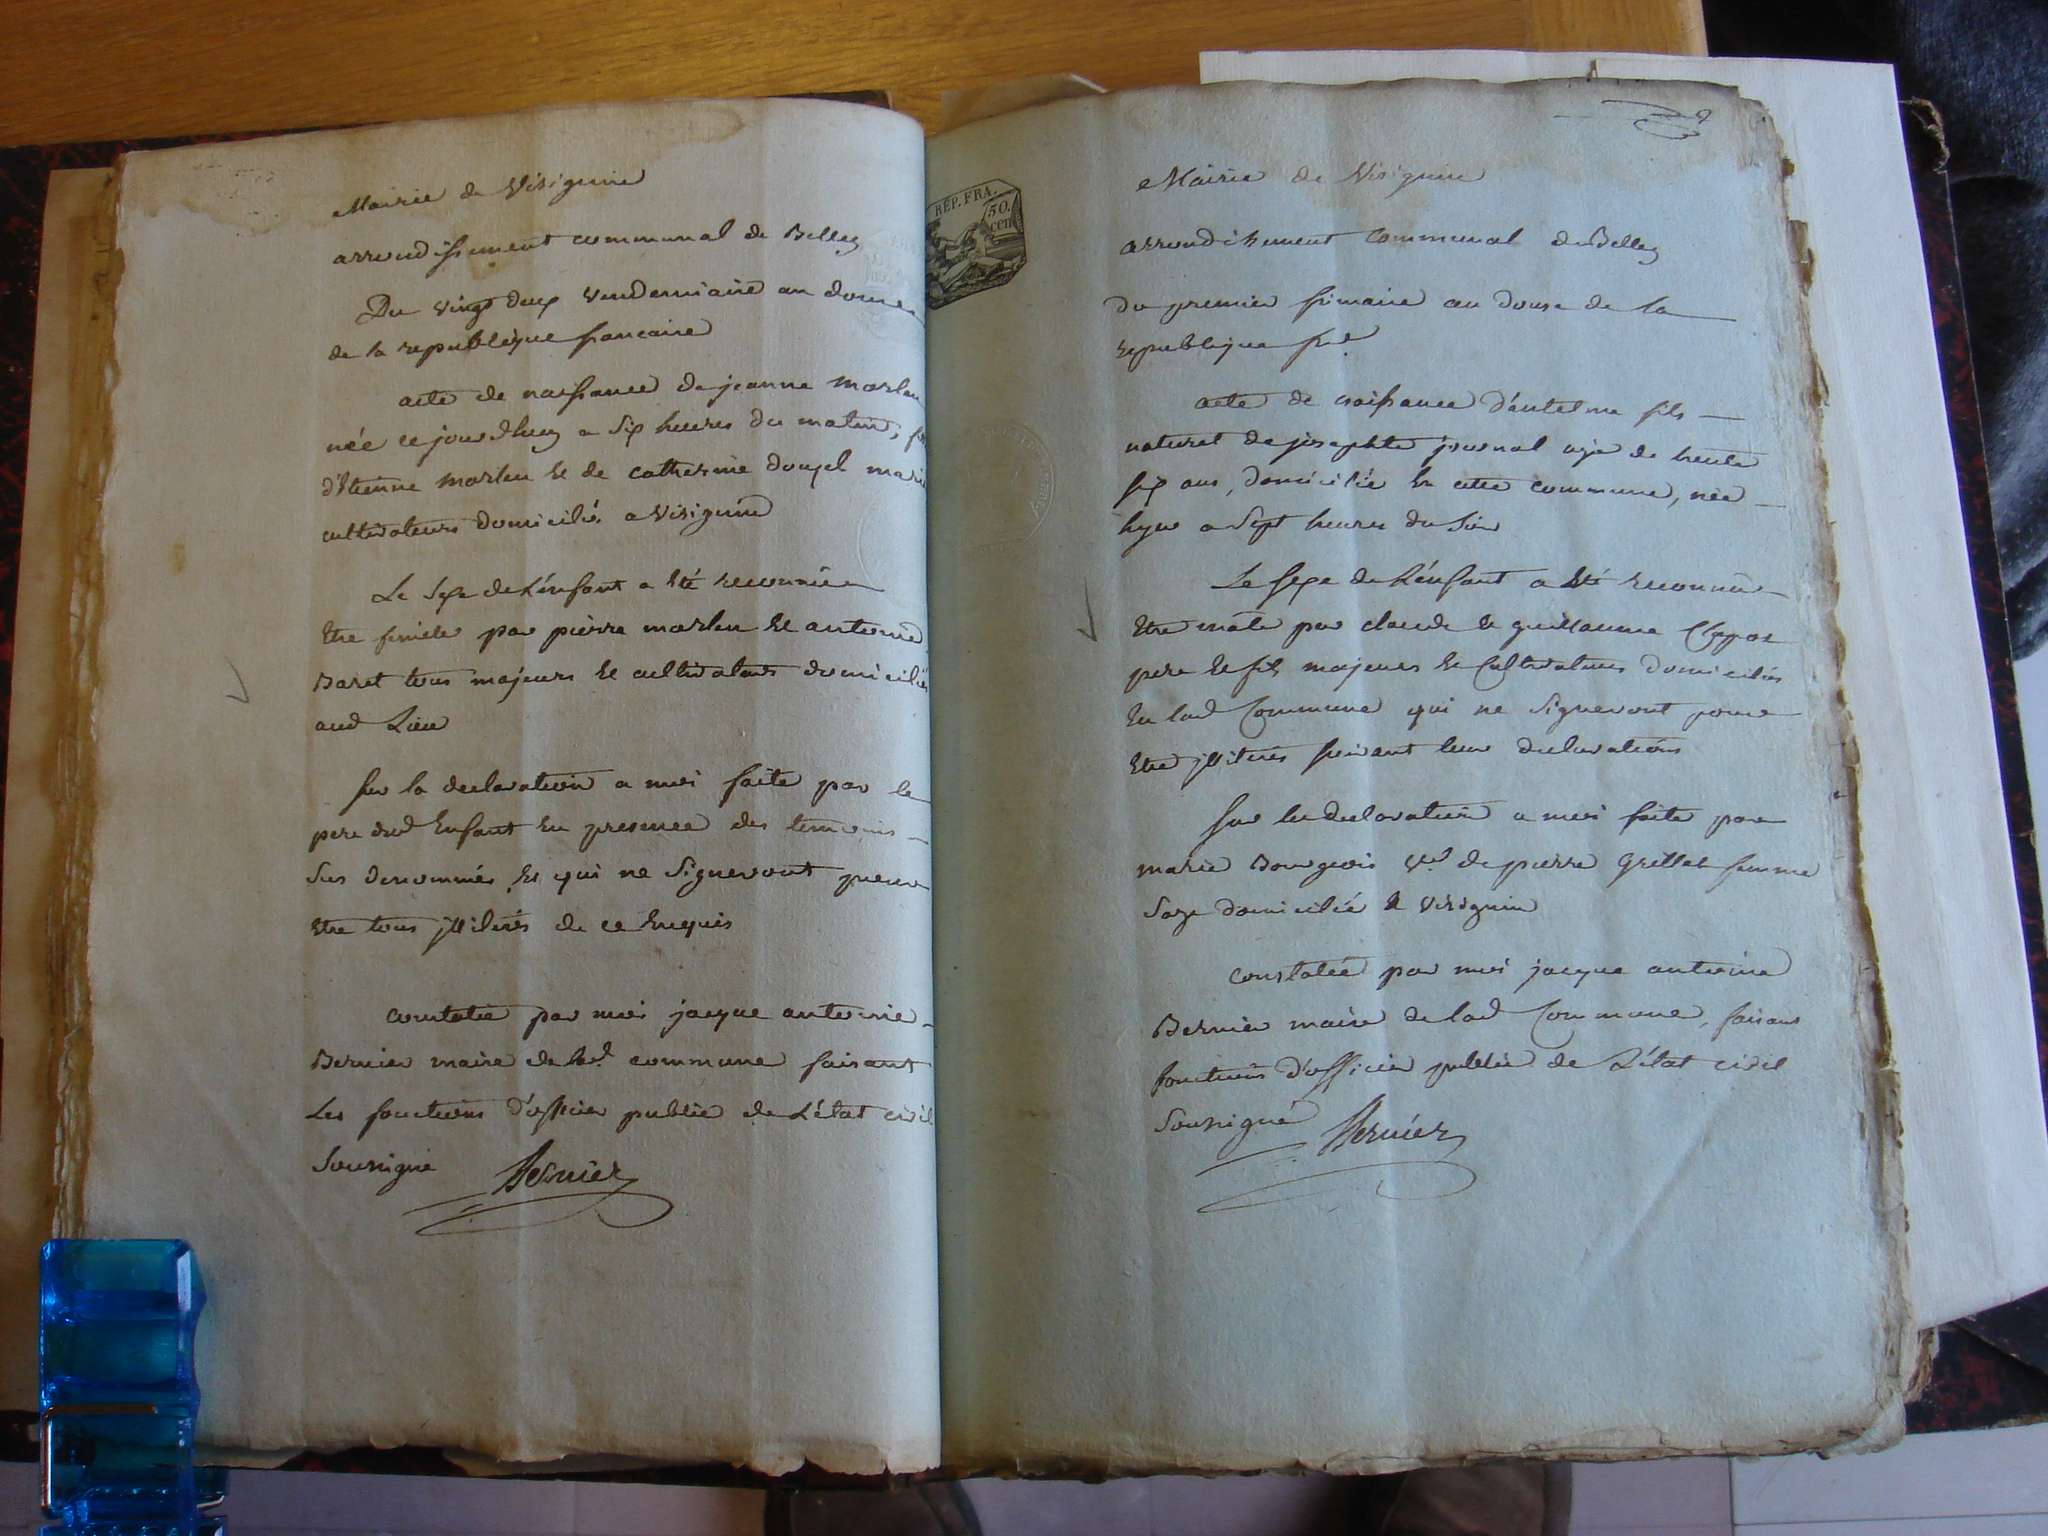 Mairie de Virignin
arrondissement communal de Belley
Du vingt deux vendemiaire an douze
de la republique francaise
acte de naissance de jeanne marlin
née ce jourdhuy a six heures du matin,
d'Etienne marlin et de catherine
cultivateurs domiciliés a Virignin
Le sexe de L'enfant a été reconnu
Etre femele par pierre marlin et antoine
Baret tous majeurs et cultivateurs domiciliés
aud Lieu
sur la declaration a moi faite par le
pere dud Enfant En presence des temoins
sus denommés et qui ne signeront pour
Etre tous illiterés de ce Enquis
constatée par moi jacque antoine
Bernier maire de lad. commune faisant
Les fonctions d'officier public de L'état civil
soussigné Bernier
RÉP. FRA.
50.
cen
Mairie de Virignin
arrondissement communal de Belley
du premier frimaire an douze de la
republique
acte de naissance d'antelme fils
naturel de josephte journal agé de trente
six ans, domiciliée En cette commune, née
hyer a sept heures du soir
Le sexe de L'enfant a été reconnu
Etre male par claude et guillaume
pere et fils majeurs et Cultivateurs domiciliés
En lad Commune qui ne signeront pour
Etre illiterés suivant leur declarations
sur la declaration a moi faite par
marie Bourgeois Ve de pierre Grillet femme
sage domiciliée a Virignin
constatée par moi jacque antoine
Bernier maire de lad Commune, faisant
fonctions d'officier public de L'état civil
soussigné Bernier